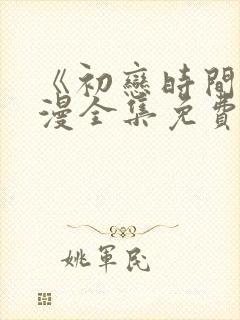 《初戀時間
漫全集免費
姚軍民